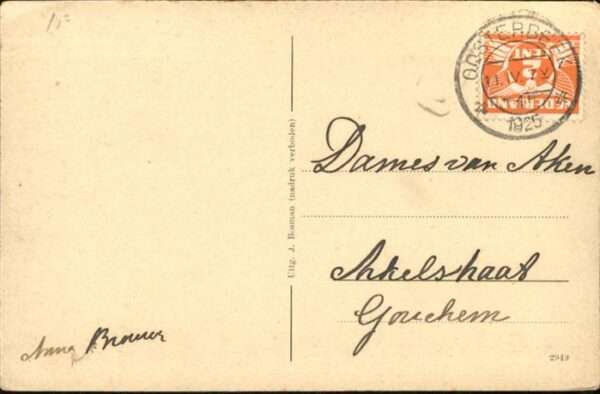 OOSTERBEEK
1925
CENT
NEDERLAND
Dames van Aken
Arkelstraat
Gorichem
Anna Brouwer
Uitg. J. Bosman (nadruk verboden)
2949